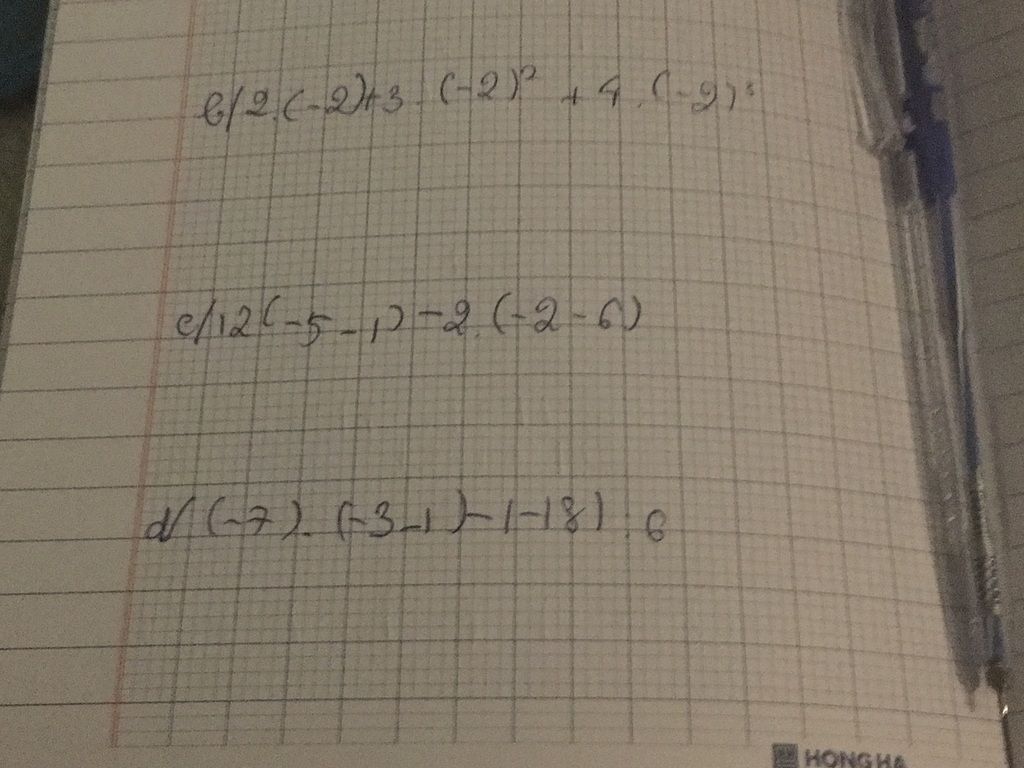 b/ 2.(-2)+3.(-2)² + 4.(-2)³
c/ 12(-5-1) - 2.(-2-6)
d/ (-7).(-3-1)-(-18):6
HONG HA